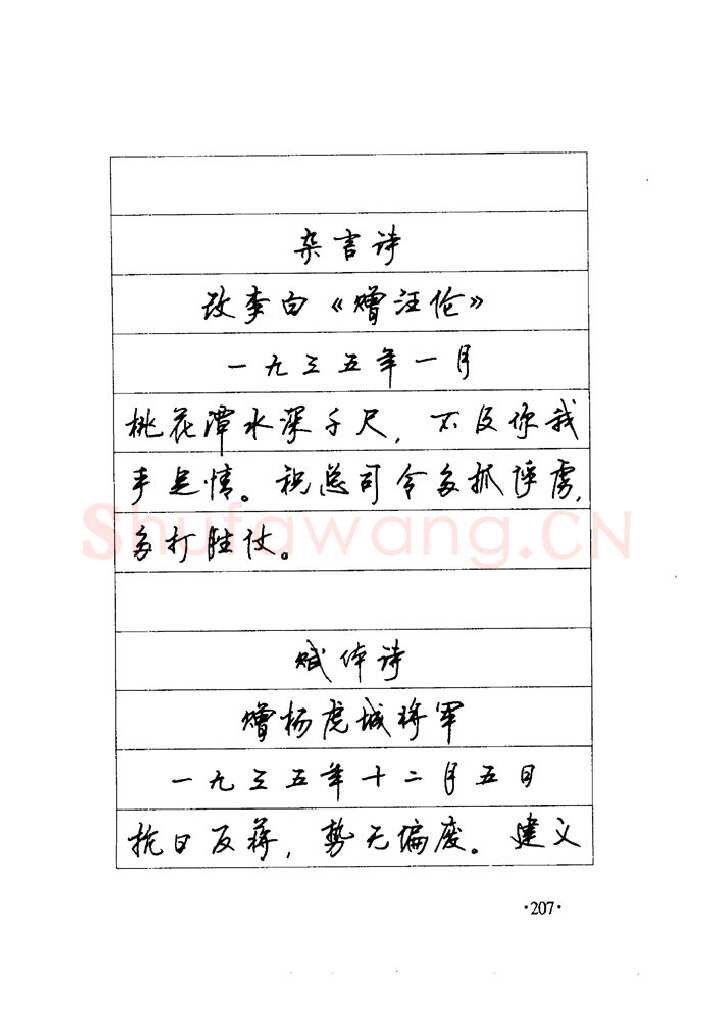 杂言诗
改李白《赠汪伦》
一九三五年一月
桃花潭水深千尺，不及你我
手足情。祝总司令多抓俘虏，
多打胜仗。
Shufawang.CN
赋体诗
赠杨虎城将军
一九三五年十二月五日
抗日反蒋，势无偏废。建义
·207·